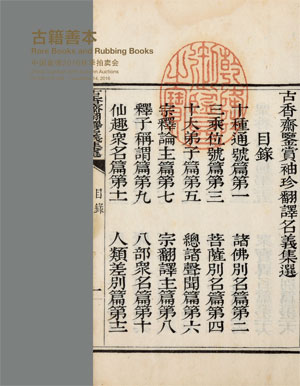 古籍善本
Rare Books and Rubbing Books
古香齋鑒賞袖珍翻譯名義集選
目錄
十種通號篇第一
諸佛別名篇第二
三乘位號篇第三
菩薩別名篇第四
十大弟子篇第五
總諸聲聞篇第六
宗釋論主篇第七
宗翻譯主篇第八
釋子稱謂篇第九
八部衆名篇第十
仙趣衆名篇第十一
人類差別篇第十二
目錄
一